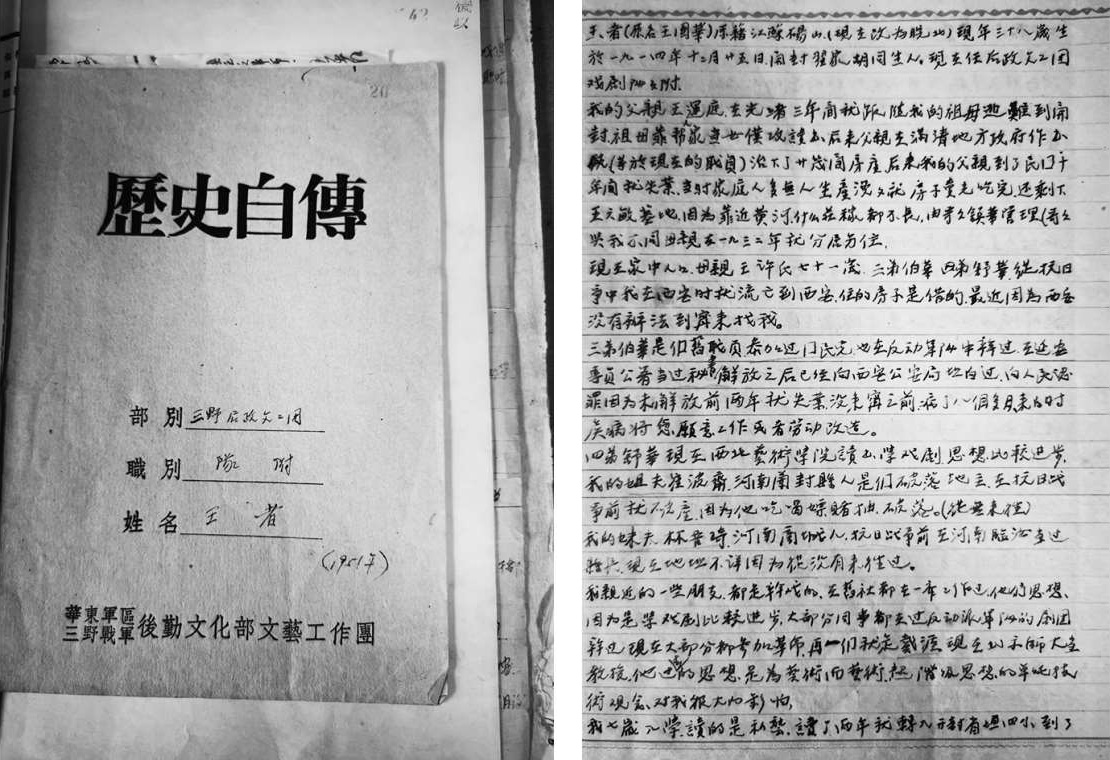 歷史自傳
部別 三野后政文工團
職別 隊附
姓名 王者
(1951年)
華東軍區
三野戰軍
後勤文化部文藝工作團
王者(原名王國華)原籍江蘇碭山(現在改為皖北)現年三十八歲生
於一九一四年十二月廿五日開封翟家胡同生人。現在任后政文工团
戏剧队队附.
我的父親王運庭,在光緒三年間就跟隨我的祖母逃難到開
封祖母靠帮家当女僕攻讀书后来父親在滿清地方政府作
(等於現在的職員)治下了廿幾间房産后来我的父親到了民囗十
年间就失業,当时家庭人多無人生產没多久就房子賣光吃完还剩下
墓地,因為靠近黄河什么莊稼都不長,由哥久镇華管理(哥久
與我不同母親在一九三二年就分居另住.
現在家中人口.母親王許氏七十一歲.三弟伯華四弟舒華從抗日
争中我在西安时就流亡到西安.住的房子是借的.最近因為西安
没有辦法到寗来找我。
三弟伯華是们舊職員参加过囗民党也在反动軍队中幹过.在延安
專員公署当过秘書解放之后已经向西安公安局坦白过.向人民認
罪因为未解放前两年就失業没来寗之前.病了八個多月来的时
候病将愈.願意工作或者劳动改造。
四弟舒華現在西北藝術學院讀书學戏剧思想比较進步.
我的姐夫崔波齋.河南蘭封縣人是们破落地主.在抗日战
争前就破產.因为他吃喝嫖賭抽.破落。(從無来往)
我的妹夫.林晋琦河南蘭封人.抗日战争前在河南臨汝当过
現在地址不详因为從没有来往过。
我親近的一些朋友.都是幹戏的.在舊社都在一齐工作过.他们思想.
因为是學戏剧比较進步大部分同事都在过反动派軍队的剧团
幹过現在大部分都参加革命.再一们就是戴涯現在北京師大当
教授.他过去的思想.是為藝術而藝術.超階级思想的單純技
術观念.对我很大的影响.
我七歲入學讀的是私塾.讀了两年就轉入開封省立四小.到了